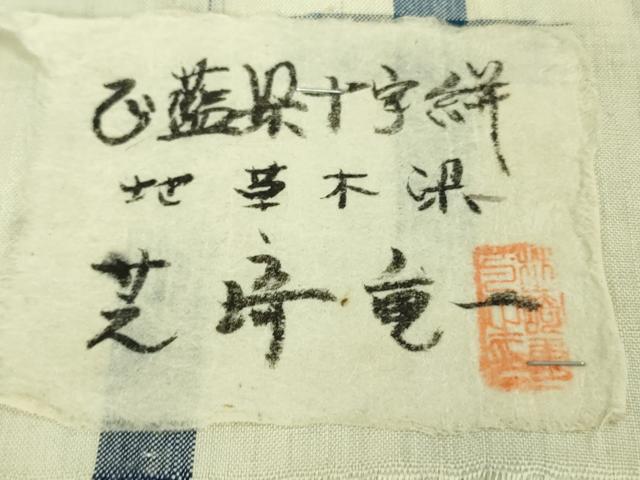 正藍染十字絣
地草木染
芝崎重一